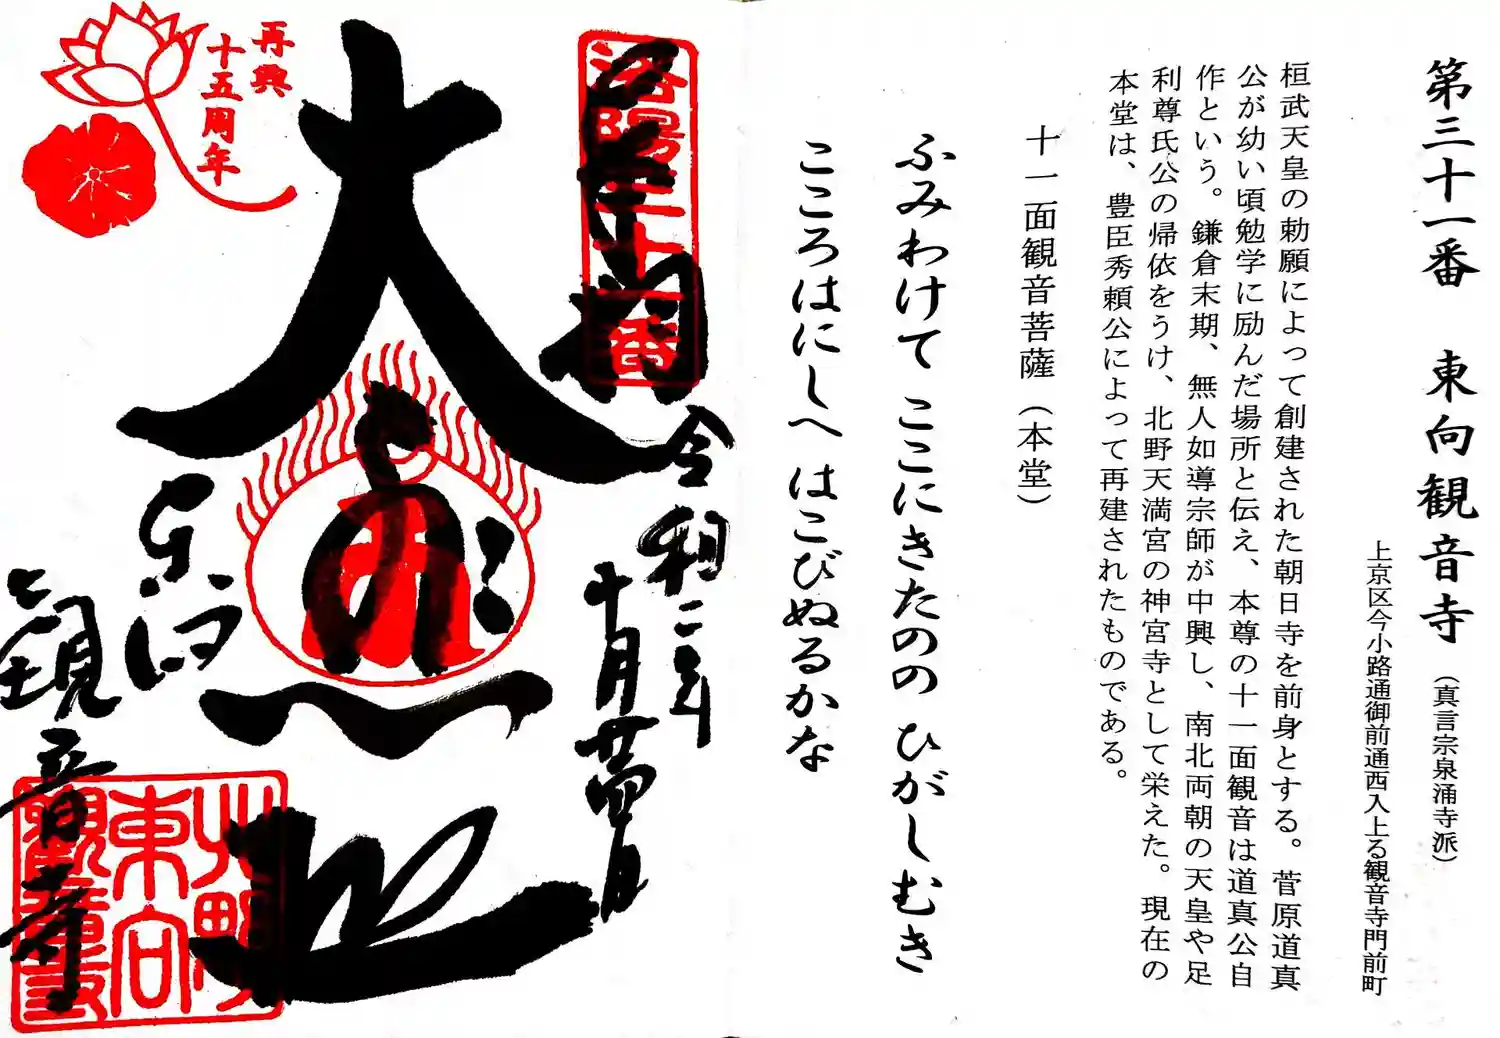 第三十一番 東向観音寺(真言宗泉涌寺派)
上京区今小路通御前通西入上る観音寺門前町
桓武天皇の勅願によって創建された朝日寺を前身とする。菅原道真
公が幼い頃勉学に励んだ場所と伝え、本尊の十一面観音は道真公自
作という。鎌倉末期、無人如導宗師が中興し、南北両朝の天皇や足
利尊氏公の帰依をうけ、北野天満宮の神宮寺として栄えた。現在の
本堂は、豊臣秀頼公によって再建されたものである。
十一面観音菩薩(本堂)
ふみわけて ここにきたのの ひがしむき
こころはにしへ はこびぬるかな
洛陽三十一番
令和二年
十月
大悲
観音寺
再興
十五周年
北野
東向
観音寺